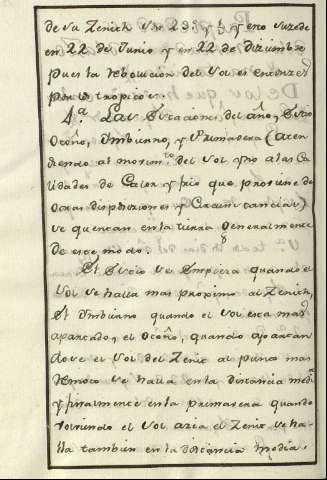 de su Zenich son 23: y ½ y eso suzede
en 22 de Junio y en 22 de Diziembre
pues la rebolucion del Sol es entre
por los tropicos.
4.ª Las Estaciones del año, Estio
Otoño, Imbierno, y Primavera (aten
diendo al movim.to del Sol y no a las Ca
lidades de Calor y frio que proviene de
otras disposiciones y Circunstancias)
se quentan en la tierra Generalmente
de este modo.
El Estio se Empieza quando el
Sol se halla mas proximo al Zenich,
El Imbierno quando el Sol esta mas
apartado, el Otoño, quando apartan
dose el Sol del Zenit al punto mas
Remoto se halla en la distancia media
y finalmente en la primavera quando
el Sol azia el Zenit se ha-
lla tambien en la distancia media.